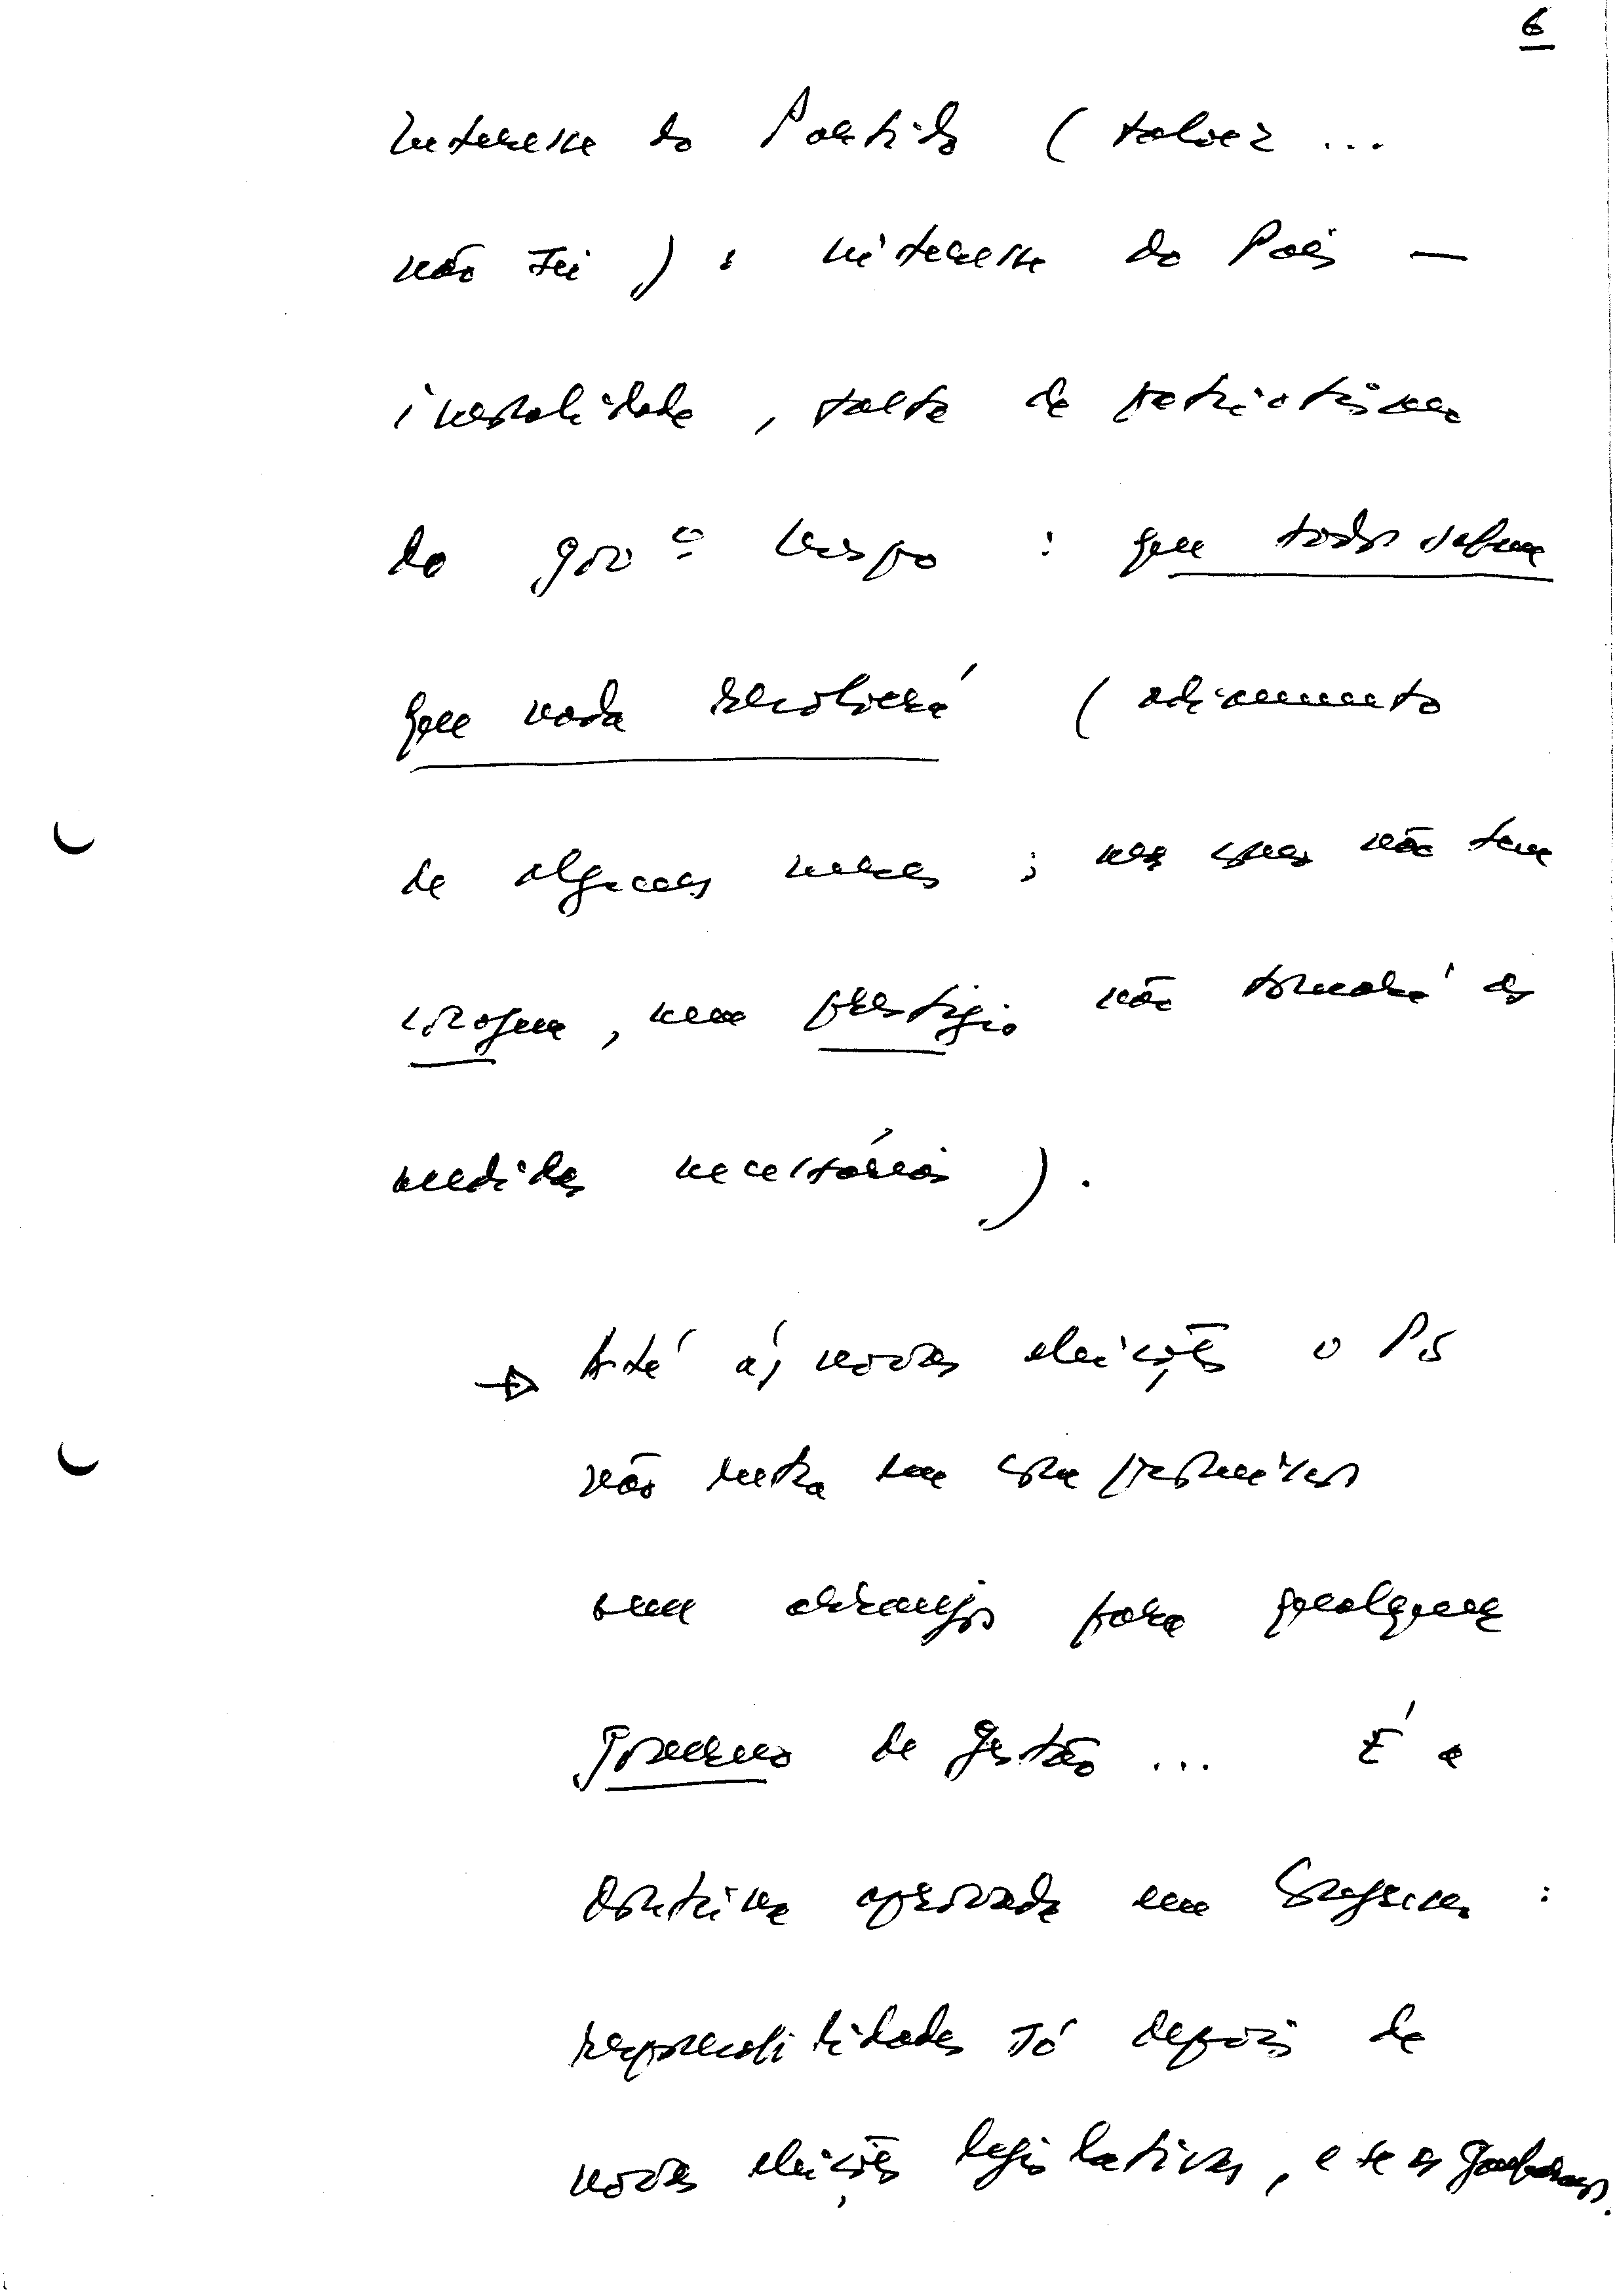 6
Interesse do Partido (talvez ...
não sei) : interesse do País —
imoralidade, falta de patriotismo
do gov.º Crespo : que todos sabem
que nada resolverá (adiamento
de alguns meses ; mas como não tem
coragem, nem prestígio não tomará as
medidas necessárias).
→ Até às novas eleições o PS
não entra em combinações
nem arranjos para qualquer
governo de gestão ... É a
doutrina aprovada em Congresso :
responsabilidades só depois de
novas eleições legislativas, e se as ganharmos.